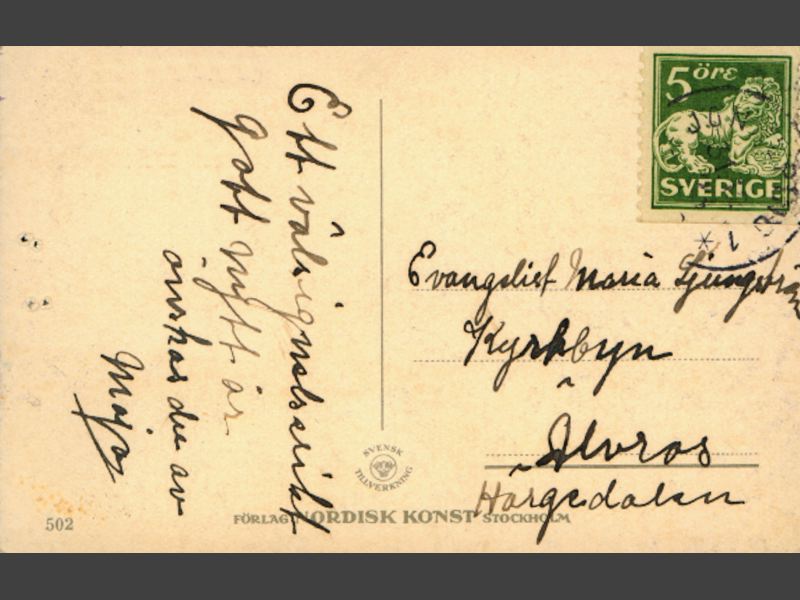 Ett välsignelserikt
Gott nytt år
önskas du av
Maja
5 öre
SVERIGE
Evangelist Maria
Kyrkbyn
Älvros
Härgedalen
SVENSK
TILLVERKNING
502
FÖRLAG NORDISK KONST STOCKHOLM